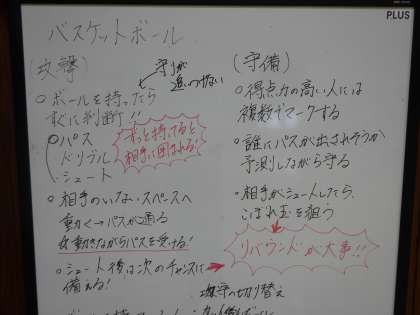 PLUS
バスケットボール
(攻撃)
守りが
追いつけない
○ボールを持ったら
すぐに判断!!
○パス
ドリブル
・シュート
ずっと持ってると
相手に囲まれる!
○相手のいないスペースへ
動く→パスが通る
☆動きながらパスを受ける!
○シュート後は次のチャンスに
備える!
(守備)
○得点力の高い人には
複数でマークする
○誰にパスが出されそうか
予測しながら守る
○相手がシュートしたら、
こぼれ玉を狙う
リバウンドが大事!!
攻守の切り替え